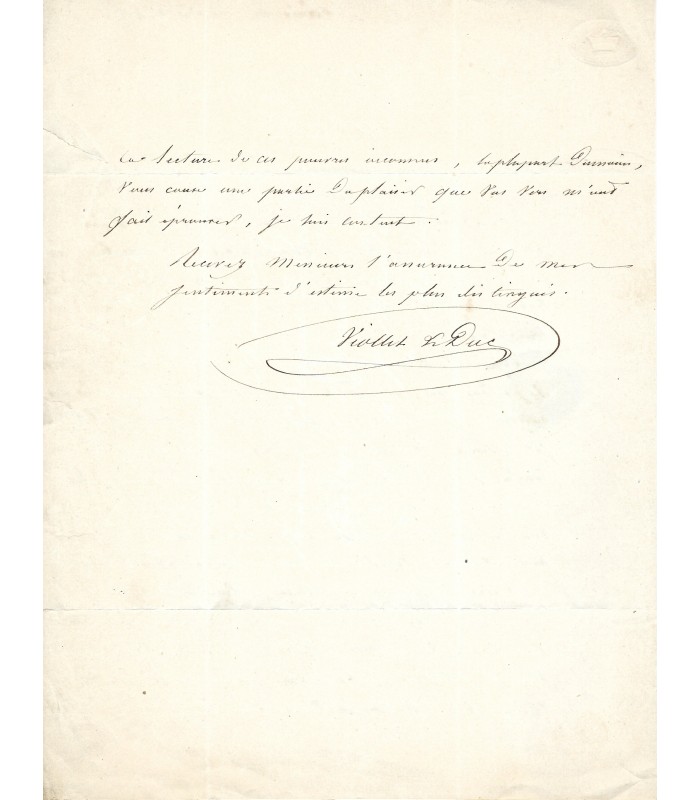 la lecture de ces pauvres inconnus, la plupart du moins,
vous cause une partie du plaisir que vos vers m'ont
fait éprouver, je suis content.
Recevez Messieurs l'assurance de mes
sentiments d'estime les plus distingués.
Viollet Le Duc